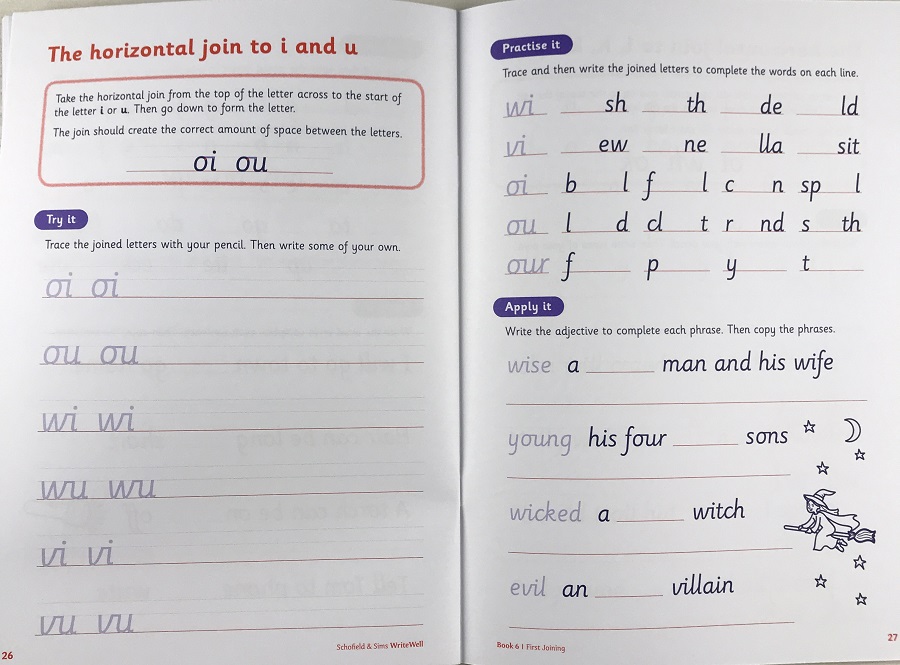 The horizontal join to i and u
Take the horizontal join from the top of the letter across to the start of
the letter i or u. Then go down to form the letter.
The join should create the correct amount of space between the letters.
oi ou
Try it
Trace the joined letters with your pencil. Then write some of your own.
oi oi
ou ou
wi wi
wu wu
vi vi
vu vu
26
Schofield & Sims WriteWell
Practise it
Trace and then write the joined letters to complete the words on each line.
wi ____ sh ____ th ____ de ____ ld
vi ____ ew ____ ne ____ lla ____ sit
oi b____l f____l c____n sp____l
ou l____d cl____t r____nd s____th
our f____ p____ y____ t____
Apply it
Write the adjective to complete each phrase. Then copy the phrases.
wise a ____ man and his wife
young his four ____ sons
wicked a ____ witch
evil an ____ villain
Book 6 | First Joining
27